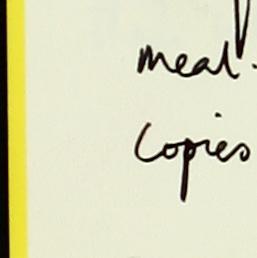 meal.
copies